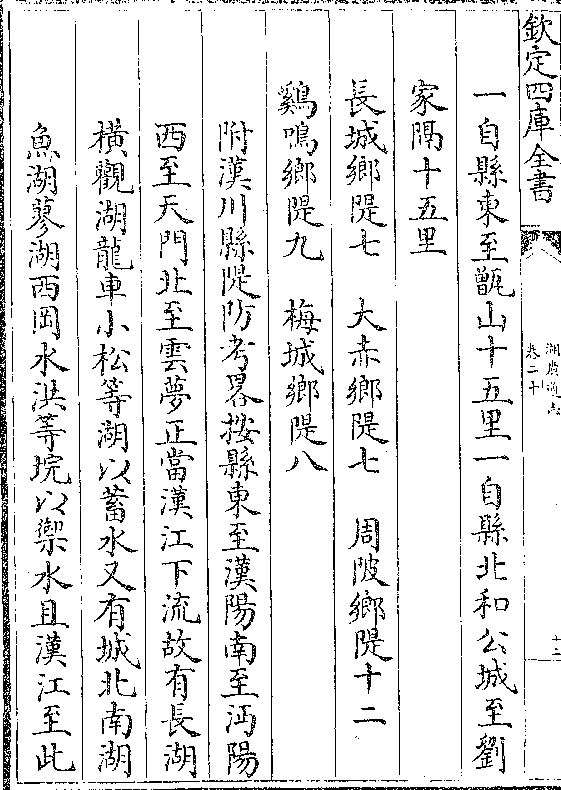 欽定四庫全書
湖廣通志
卷二十
十二
一自縣東至甑山十五里一自縣北和公城至劉
家隔十五里
長城鄉隄七　大赤鄉隄七　周陂鄉隄十二
鷄鳴鄉隄九　梅城鄉隄八
附漢川縣隄防考畧按縣東至漢陽南至沔陽
西至天門北至雲夢正當漢江下流故有長湖
橫觀湖龍車小松等湖以蓄水又有城北南湖
魚湖蓼湖西岡水洪等垸以禦水且漢江至此